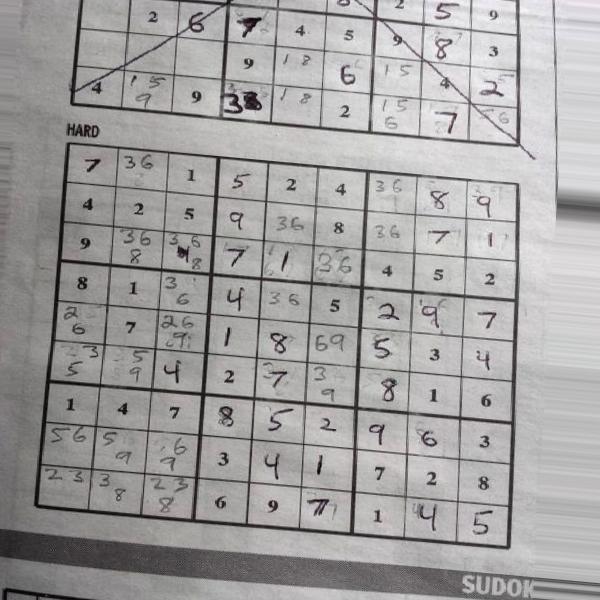 2 6 7 4 5 9 8 3
9 1 8 6 1 5 4 2
4 1 5 9 9 3 1 8 2 1 5 6 7
HARD
7 3 6 1 5 2 4 3 6 8 9
4 2 5 9 3 6 8 3 6 7 1
9 3 6 8 3 6 8 7 1 3 6 4 5 2
8 1 3 6 4 3 6 5 2 9 7
2 6 7 2 6 9 1 8 6 9 5 3 4
2 3 5 5 9 4 2 7 3 9 8 1 6
1 4 7 8 5 2 9 6 3
5 6 5 9 6 9 3 4 1 7 2 8
2 3 3 8 2 3 8 6 9 7 1 4 5